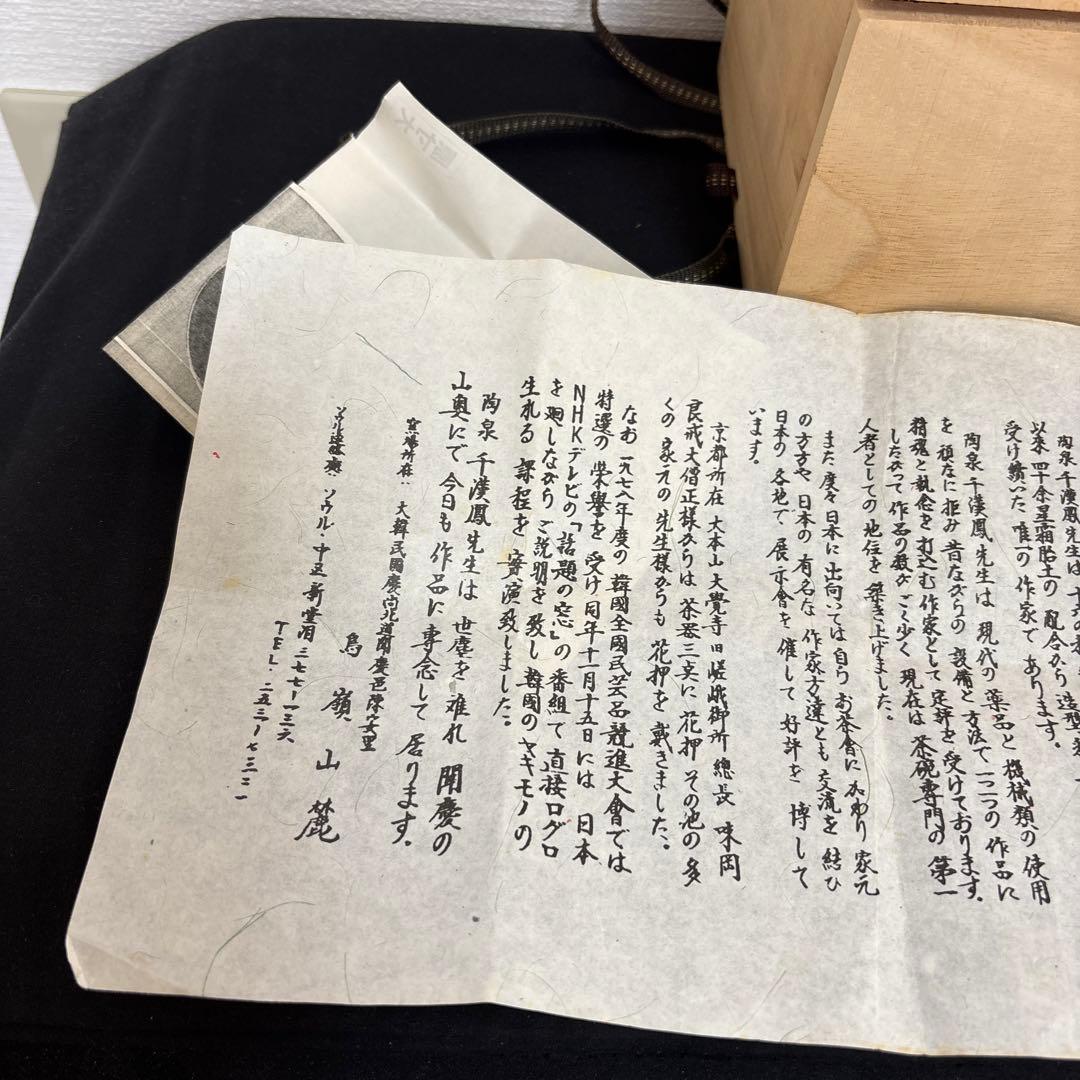 陶泉千漢鳳先生は
以来 四十余星霜胎土の 配合から 造型
受け續いた 唯一の 作家で あります。
陶泉 千漢鳳 先生は 現代の 薬品と 機械類の 使用
を 頑なに 拒み 昔ながらの 設備と 方法で 一つ一つの 作品に
精魂と 執念を 打込む 作家として 定評を 受けております。
したがって 作品の 数が ごく少く 現在は 茶碗専門の 第一
人者としての 地位を 築き上げました。
また 度々 日本に 出向いては 自ら お茶會に 加わり 家元
の 方方や 日本の 有名な 作家方達とも 交流を 結び
日本の 各地で 展示會を 催して 好評を 博して
います。
京都所在 大本山 大覺寺 旧嵯峨御所 總長 味岡
良戒 大僧正様からは 茶器三点に 花押 その他の 多
くの 家元の 先生様からも 花押を 戴きました。
なお 一九七八年度の 韓國全國民芸品競進大會では
特選の 榮譽を 受け 同年 十一月十五日には 日本
NHKテレビの「話題の窓」の 番組で 直接ログロ
を 廻しながら ご説明を 致し 韓國の ヤキモノの
生れる 課程を 実演致しました。
陶泉 千漢鳳 先生は 世塵を 離れ 聞慶の
山奥にで 今日も 作品に 専念して 居ります。
窯場所在: 大韓民國慶尚北道聞慶邑陳安里
鳥嶺山麓
ソウル連絡處 ソウル・中区 新堂洞 三七七ノ一三六
TEL・二五三ノ七三二一